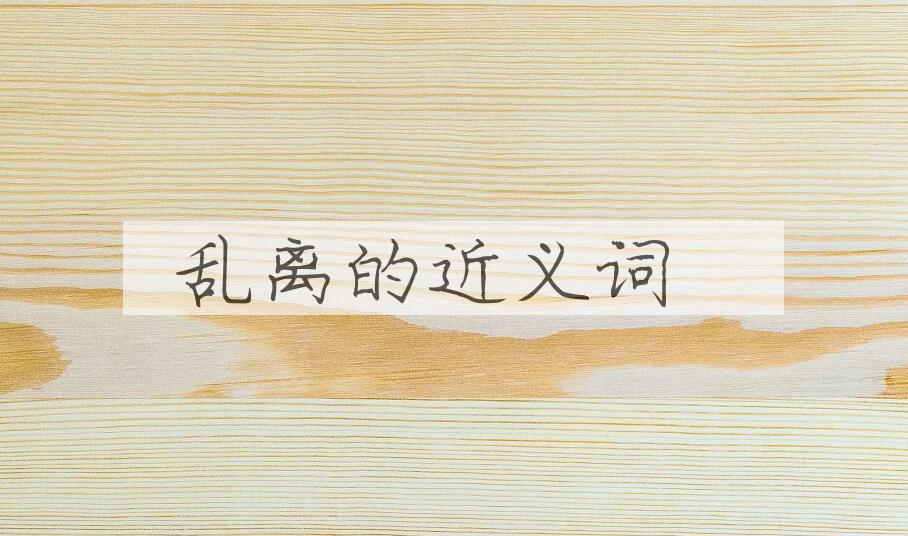 乱离的近义词